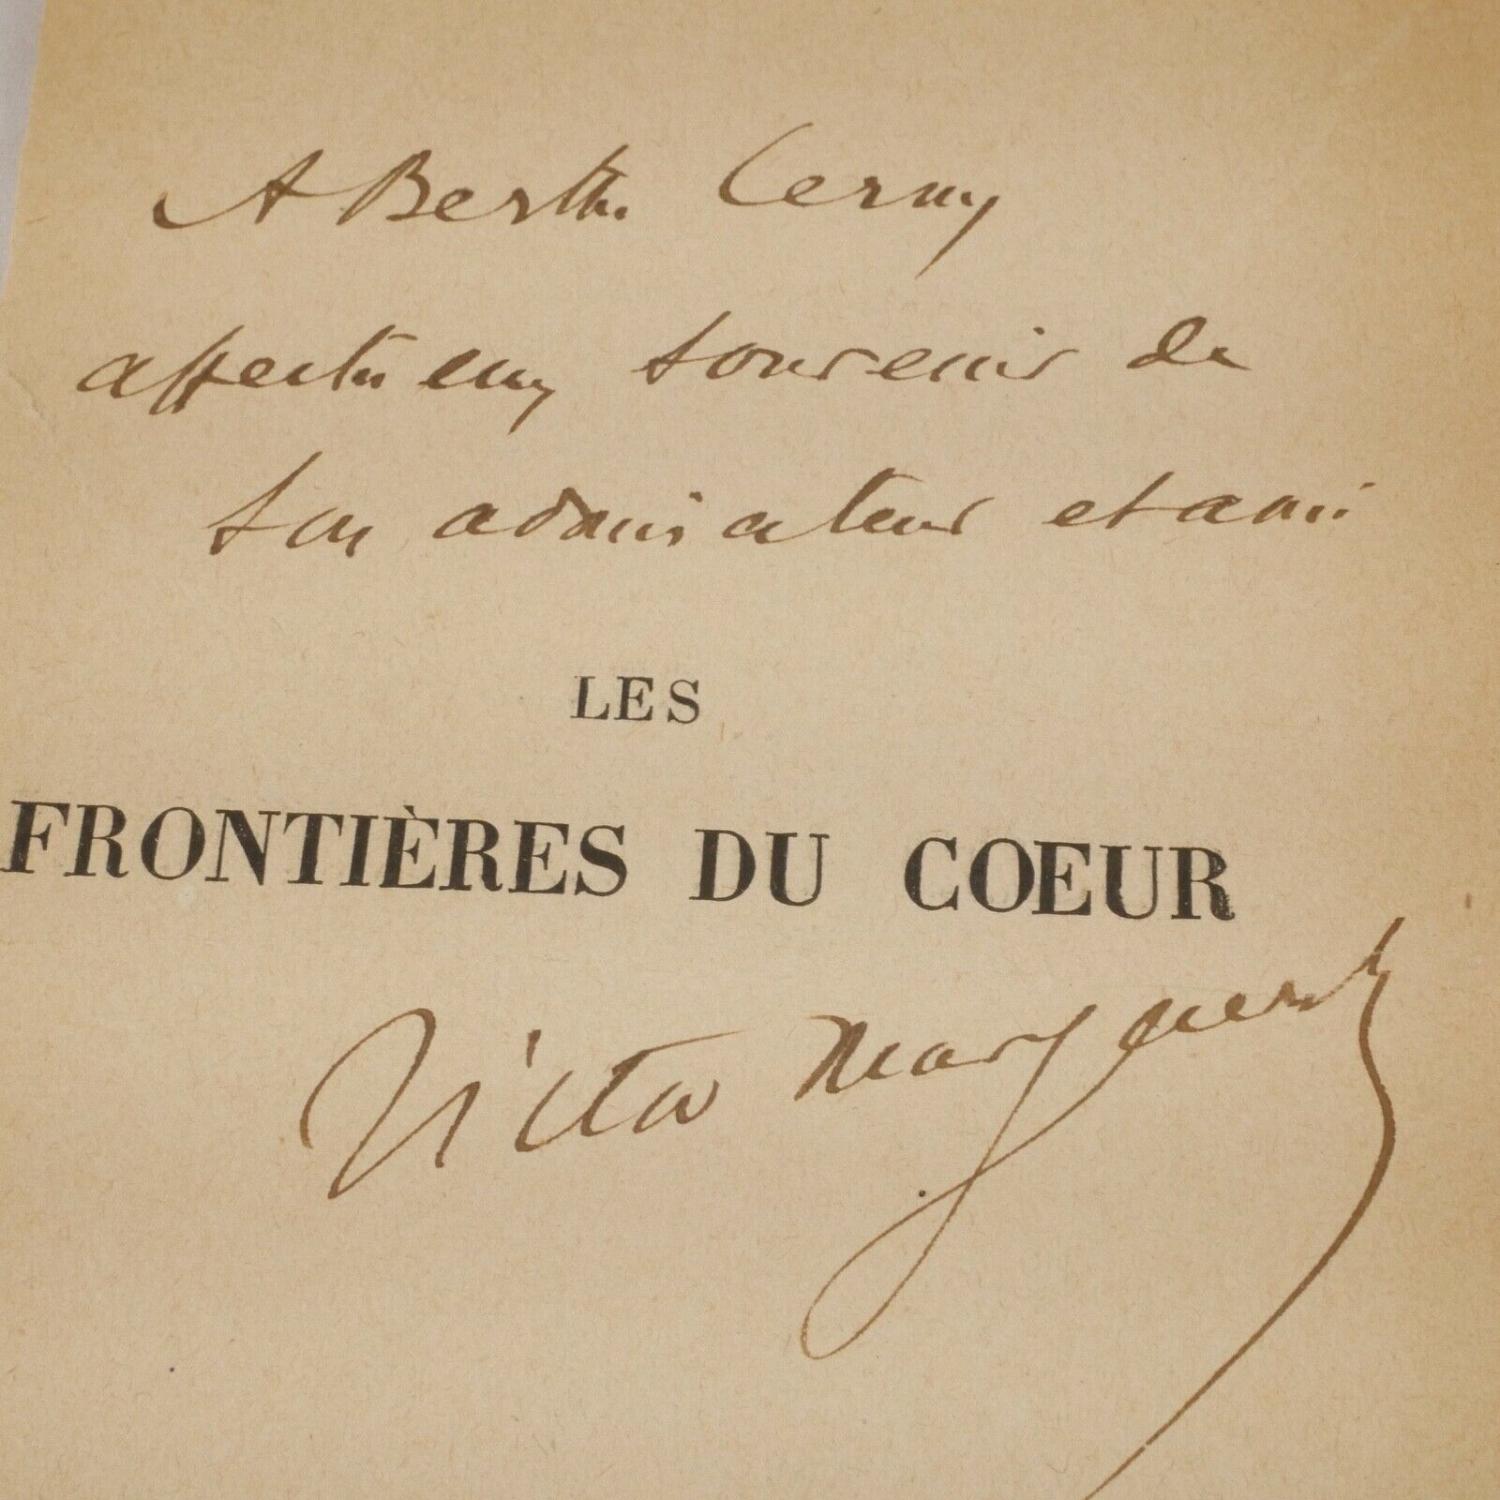 A Berthe Cerny
affectueux souvenir de
son admirateur et ami
LES
FRONTIÈRES DU COEUR
Victor Margueritte